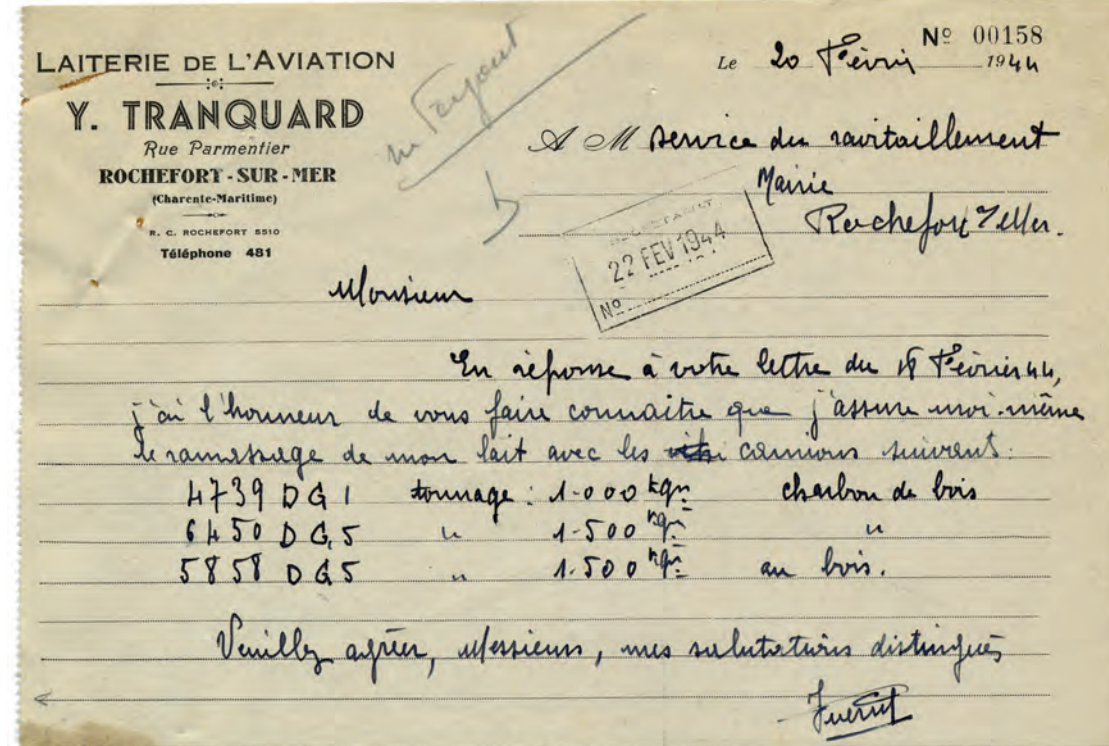 LAITERIE DE L'AVIATION
Y. TRANQUARD
Rue Parmentier
ROCHEFORT-SUR-MER
(Charente-Maritime)
R. C. ROCHEFORT 5510
Téléphone 481
Nº 00158
Le 20 Févri 1944
A M service du ravitaillement
Mairie
Rochefort
22 FEV 1944
Nº
Monsieur
En réponse à votre lettre du 18 Février 44,
j'ai l'honneur de vous faire connaitre que j'assure moi-même
le ramassage de mon lait avec les camions suivant :
4739 DG 1 tonnage : 1.000 kgr charbon de bois
6450 DG 5 " 1.500 kgr "
5858 DG 5 " 1.500 kgr au bois.
Veuillez agréer, Messieurs, mes salutations distingués